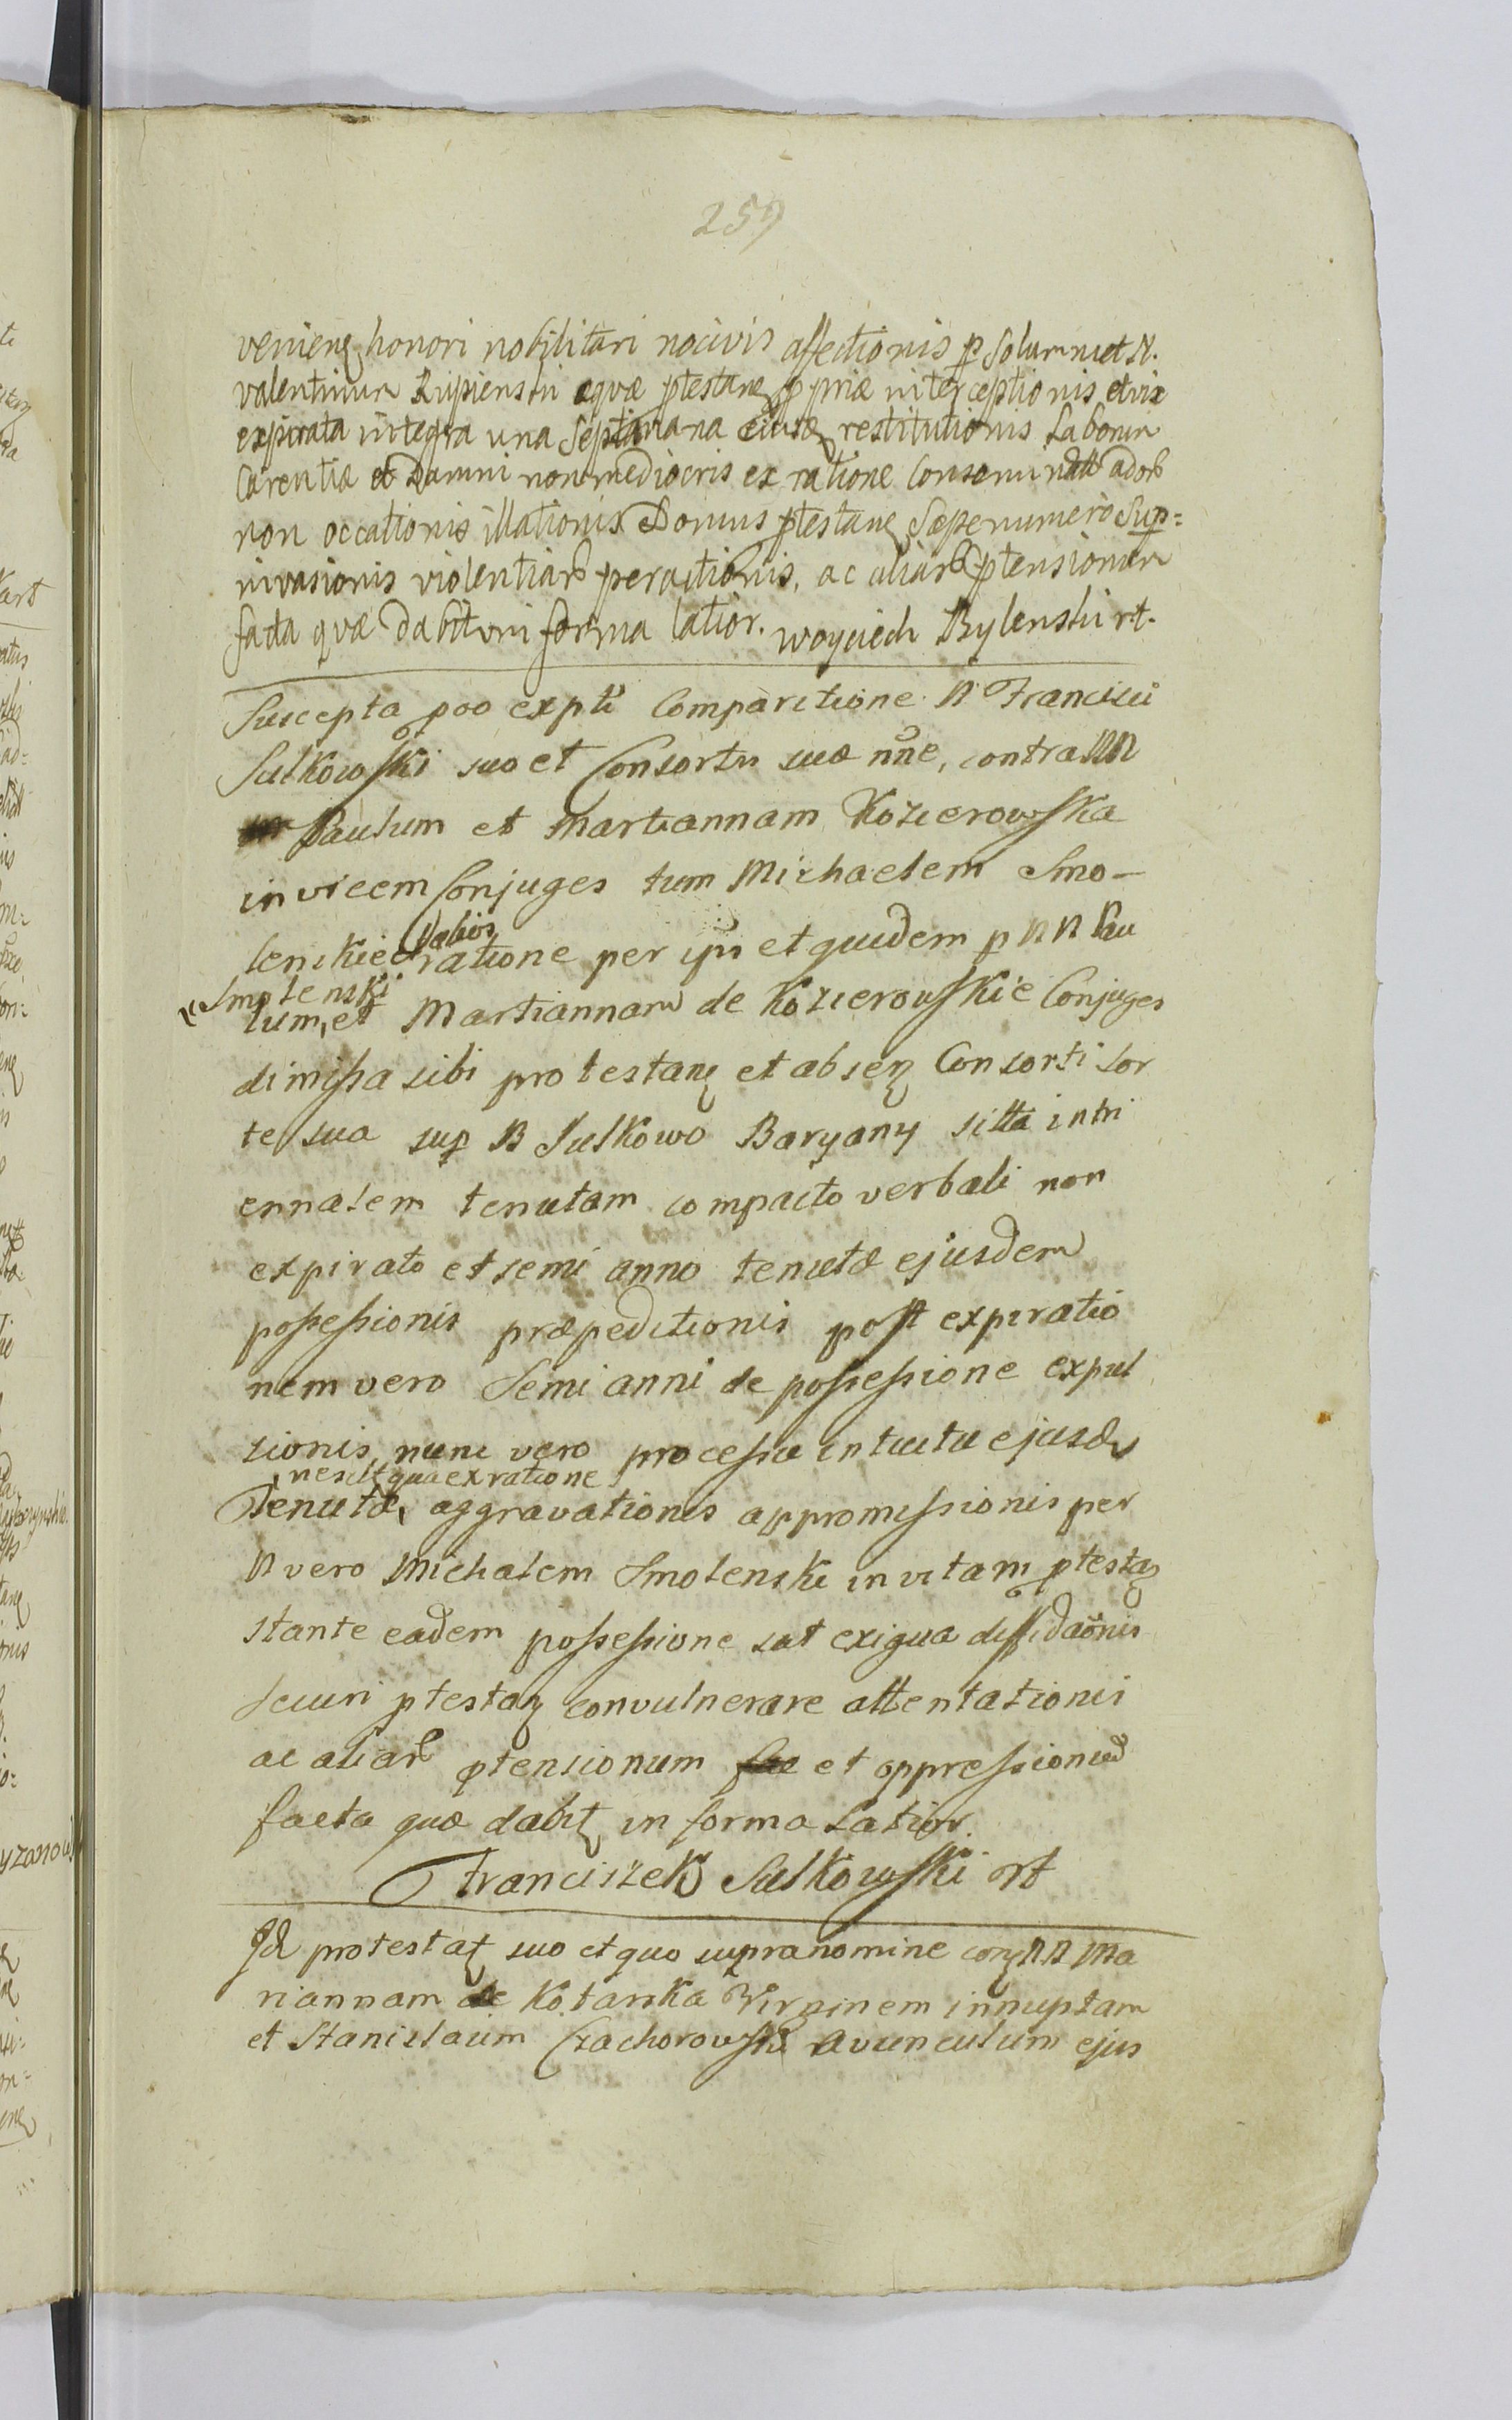 259
venien honori nobilitari nocivis affectionis p solum et N.
Valentinum Rupienski equæ ptestan ppriæ interceptionis et vix
expirata integra una Septimana eiusd restitutionis Laborum
Carentiæ et Damni non mediocris ex ratione
non occationis illationis Domus ptestan Sæpenumero Sup=
invasionis violentiar peractionis, ac aliar ptensionum
facta quæ dabit in forma latior. Woyciech Bylenski rt.
Suscepta poo expti Comparitione N Francisci
Sulkowski suo et Consortis suæ nne, contra NN
Paulum et Martiannam Kozierowska
invicem Conjuges tum Michaelem Smo-
lenskie ratione per ipsos et quidem p N N Pau
Smolenski
lum, et Martiannam de Kozierowskie Conjuges
dimissa sibi protestan et absen Consorti sor
te sua sup B Sulkowo Baryany sitta in tri
ennalem tenutam compacto verbali non
expirato et semi anno tenutæ ejusdem
possessionis præpeditionis post expiratio
nem vero Semi anni de possessione expul
sionis, nunc vero processu intuitu ejusd
nescit qua ex ratione
Tenutæ, aggravationis appromissionis per
N vero Michalem Smolenski in vitam ptestan
stante eadem possessione sat exigua diffidaonis
Securi ptestan convulnerare attentationis
ac aliar ptensionum et oppressionum
facta quæ dabit in forma Latior.
Franciszek Sulkowski rt
Id protestat suo et quo supra nomine con N N Ma
riannam de Kotarska Virginem innuptam
et Stanislaum Czachorowski avunculum ejus